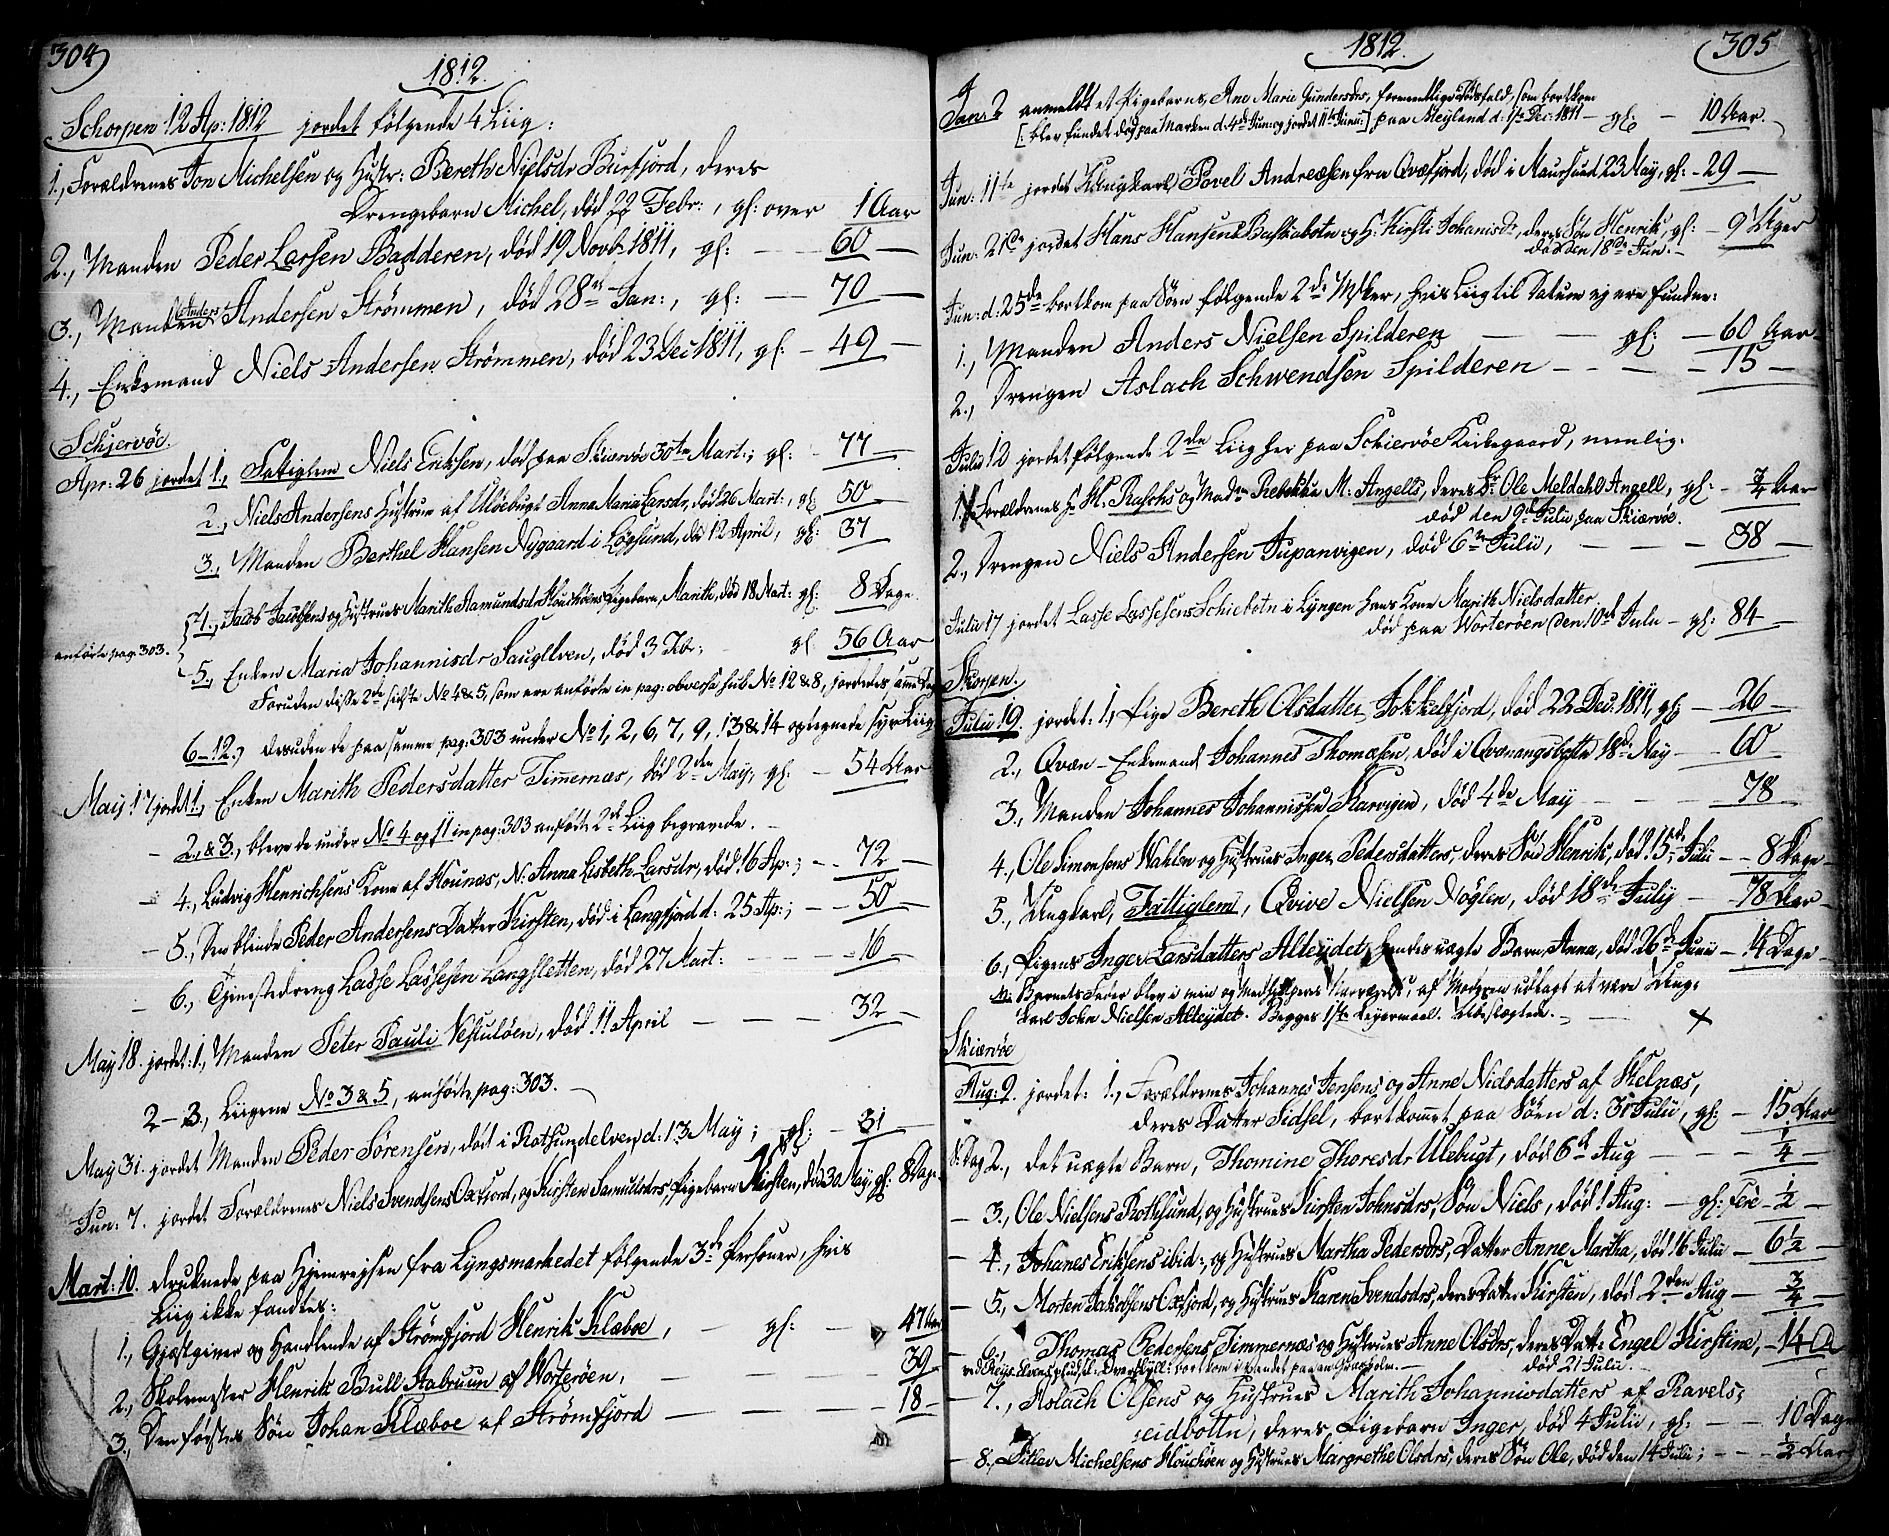 304
1812.
Schorpen 12 Ap: 1812 jordet følgende 4 Liig:
1., Forældrenes Jon Michelsen og Hustr: Bereth Nielsdr Burfjord, deres
Drengebarn Michel, død 22 Febr:, gl: over 1 Aar
2., Manden Peder Larsen Badderen, død 19 Novb. 1811, gl: — 60 —
3., Manden Anders Andersen Strømmen, død 28de Jan:, gl: — 70 —
4., Enkemand Niels Andersen Strømmen, død 23 Dec 1811, gl: — 49 —
Schjervöe.
Apr: 26 jordet 1., Fattiglem Niels Eriksen, død paa Skiervöe 30te Mart:; gl: — 77 —
2., Niels Andersens Hustrue af Ulöebugt Anna Maria Larsdr, død 26 Mart:, gl: 50 —
3., Manden Berthel Hansen Nygaard i Løgsund, død 12 April, gl: 37
4., Jacob Jacobsens og Hustrues Marith Amundsdr Houchöens Pigebarn, Marith, død 18 Mart: gl: 8 Dage.
anførte pag: 303.
5., Enken Maria Johannisdr Saugelven, død 3 gl: 56 Aar
Foruden disse 2de sidste No 4 & 5, som ere anførte in pag: obversa sub No 12 & 8, jordedes samme Dag
6–12.) desuden de paa samme pag: 303 under No 1, 2, 6, 7, 9, 13 & 14 optegnede syv Liig
May 17 jordet 1., Enken Marith Pedersdatter Timmernæs, død 2den May, gl: — 54 Aar
— 2., & 3., bleve de under No 4 og 11 in pag: 303 anførte 2de Liig begravede. —
— 4., Ludvig Henrichsens Kone af Hounæs, N: Anna Lisbeth Larsdr, død 16 Ap:; — 72 —
— 5., Den blinde Peder Andersens Datter Kirsten, død i Langfjord d: 25 Ap:; — 50 —
— 6., Tjenestedreng Lasse Lassesen Langsletten, død 27 Mart: — — 16
May 18. jordet: 1., Manden Peter Pauli Vestulöen, død 11 April — — — 32 —
2–3., Liigene No 3 & 5, anførte pag: 303. —
May 31. jordet Manden Peder Sørensen, død i Rotsundelven d: 13 May; gl: — 31 —
Jun: 7. jordet Forældrenes Niels Svendsens Oxfjord, og Kirsten Samuelsdrs, Pigebarn Kirsten, død 30 May, gl: 8 Dage.
Mart: 10. druknede paa Hjemrejsen fra Lyngsmarkedet følgende 3de Personer, hvis
Liig ikke fandtes:
1., Gjæstgiver og Handlende af Strømfjord Henrik Klæboe, — gl: — 47 Aar
2., Skolemester Henrik Bull Stabruun af Vorterøen, — — — 39 —
3., Den førstes Søn Johan Klæboe af Strømfjord — — — 18 —
1812.
305
Jan: anmeldt et Pigebarns, Ane Marie Gundersdrs, formeentlige Dödsfald, som bortkom
[blev fundet død paa Marken d: 4de Jun: og jordet 11te Junii:] paa Meyland d: 1ste Dec: 1811 — gl: — 10 Aar.
Jun: 11te jordet Ungkarl Povel Andreæsen fra Qvæfjord, død i Maursund 23 May, gl: — 29 —
Jun: 21de jordet Hans Hansens Baskabotn og H: Kirsti Johanisdr, deres Søn Henrik, gl: — 9 Uger
død den 18de Jun: —
Jun: d: 25de bortkom paa Søen følgende 2de Msker, hvis Liig til Datum ej ere fundne:
1., Manden Anders Nielsen Spilderen — — gl: — 60 Aar.
2., Drengen Aslach Schwendsen Spilderen — — — — 15 —
Julii 12 jordet følgende 2de Liig her paa Schiervöe Kirkegaard, nemlig:
1., Forældrenes Hr. H. Raschs og Madme Rebekka M: Angells, deres S: Ole Meldahl Angell, gl: — ¾ Aar
død den 9de Julii paa Skiervöe.
2., Drengen Niels Andersen Jupanvigen, død 6te Julii, — — — 38 —
Julii 17 jordet Lasse Lassesens Schiebotn i Lyngen hans Kone Marith Nielsdatter
død paa Vorterøen den 10de Julii — gl: 84 —
Skorpen.
Julii 19. jordet: 1., Pige Bereth Olsdatter Jokkelfjord, død 22 Dec: 1811, gl: — 26 —
2., Qvæn-Enkemand Johannes Thomæsen, død i Qvænangsbotten 18de May — 60
3., Manden Johannes Johannissen Karvigen, død 4de May — — — 78
4., Ole Simonsens Wahlen og Hustrues Inger Pedersdatters, deres Søn Henrik, død 15de Julii — 8 Dage
5., Ungkarl, Fattiglem, Qvive Nielsen Nöglen, død 18de July — 78 Aar —
6., Pigens Inger Larsdatters Alteydet, hendes uægte Barn, Anna, død 26de Junii — 14 Dage —
N: Barnets Fader blev i min og Medhjelperes Nærværelse, af Moderen udlagt at være Ung-
karl John Nielsen Alteydet. Begges 1ste Leyermaal. Ubeslægtede. —
Skiærvöe
Aug: 9. jordet: 1., Forældrenes Johannes Jensens og Anne Nielsdatters af Helnæs,
deres Datter Sidsel, bortkommet paa Søen d: 31 Julii, gl: — 15 Aar
S: Dag 2., det uægte Barn, Thomine Thoresdr Ulebugt, død 6te Aug — — — ¼ —
— 3., Ole Nielsens Rothsund, og Hustrues Kirsten Johnsdrs, Søn Niels, død 1 Aug: — gl: Fere ½ —
— 4., Johanes Eriksens ibid:, og Hustrues Martha Pedersdrs, Datter Anne Martha, død 16 Julii — 6½ —
— 5., Morten Jakobsens Oxfjord, og Hustrues Karen Svendsdrs, deres Datter Kirsten, død 2den Aug — ¾ —
— 6., Thomas Pedersens Timmernæs og Hustrues Anne Olsdrs, deres Datter Engel Kirstine, — 14 D
død 21 Julii. —
— 7., Aslach Olsens og Hustrues Marith Johannisdatters af Ravels-
eidbottn, deres Pigebarn Inger, død 4 Julii, gl: — — 10 Dage
— 8., Michelsens Houchöen og Hustrues Margrethe Olsdrs, deres Søn Ole, død den 14 Julii; — — ½ Aar